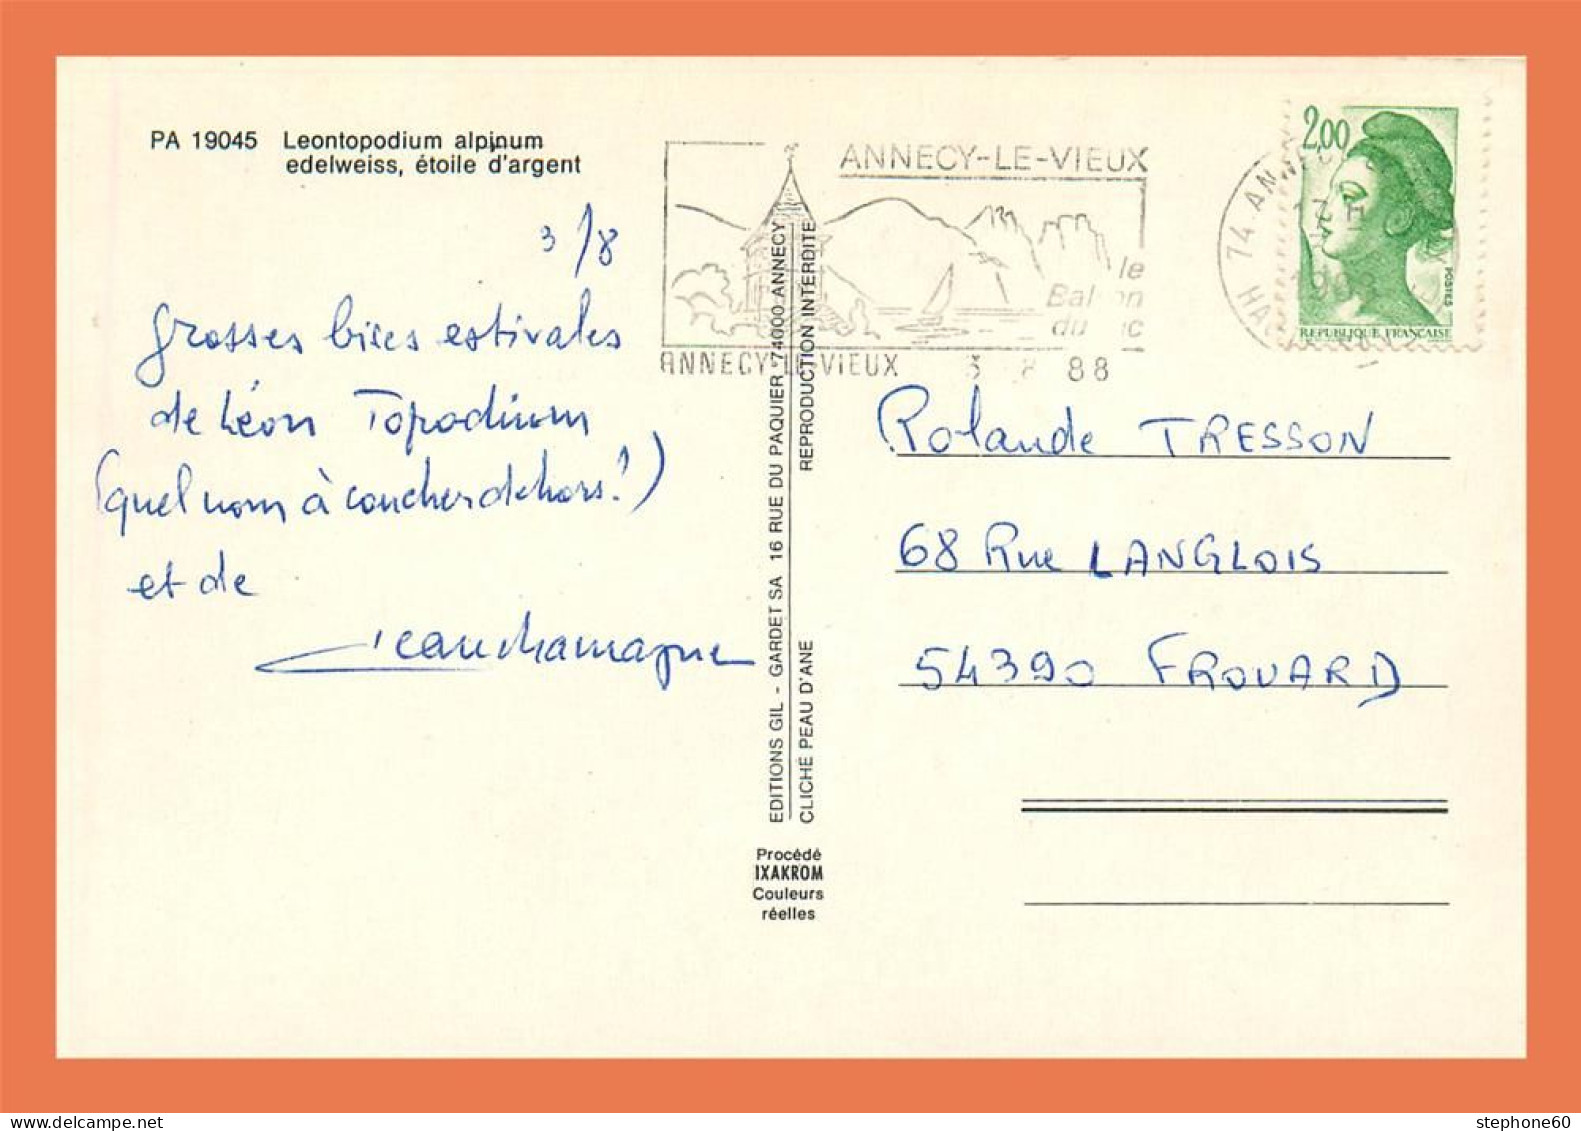 PA 19045 Leontopodium alpinum
edelweiss, étoile d'argent
3/8
grosses bises estivales
de Léon Topodium
(quel nom à coucher dehors!)
et de
ANNECY-LE-VIEUX
le
Balcon
du lac
ANNECY-LE-VIEUX 3 8 88
74 ANNECY
2,00
POSTES
REPUBLIQUE FRANÇAISE
EDITIONS GIL - GARDET SA 16 RUE DU PAQUIER 74000 ANNECY
CLICHE PEAU D'ANE REPRODUCTION INTERDITE
Rolande TRESSON
68 Rue LANGLOIS
54390 FROUARD
Procédé
IXAKROM
Couleurs
réelles
stephone60